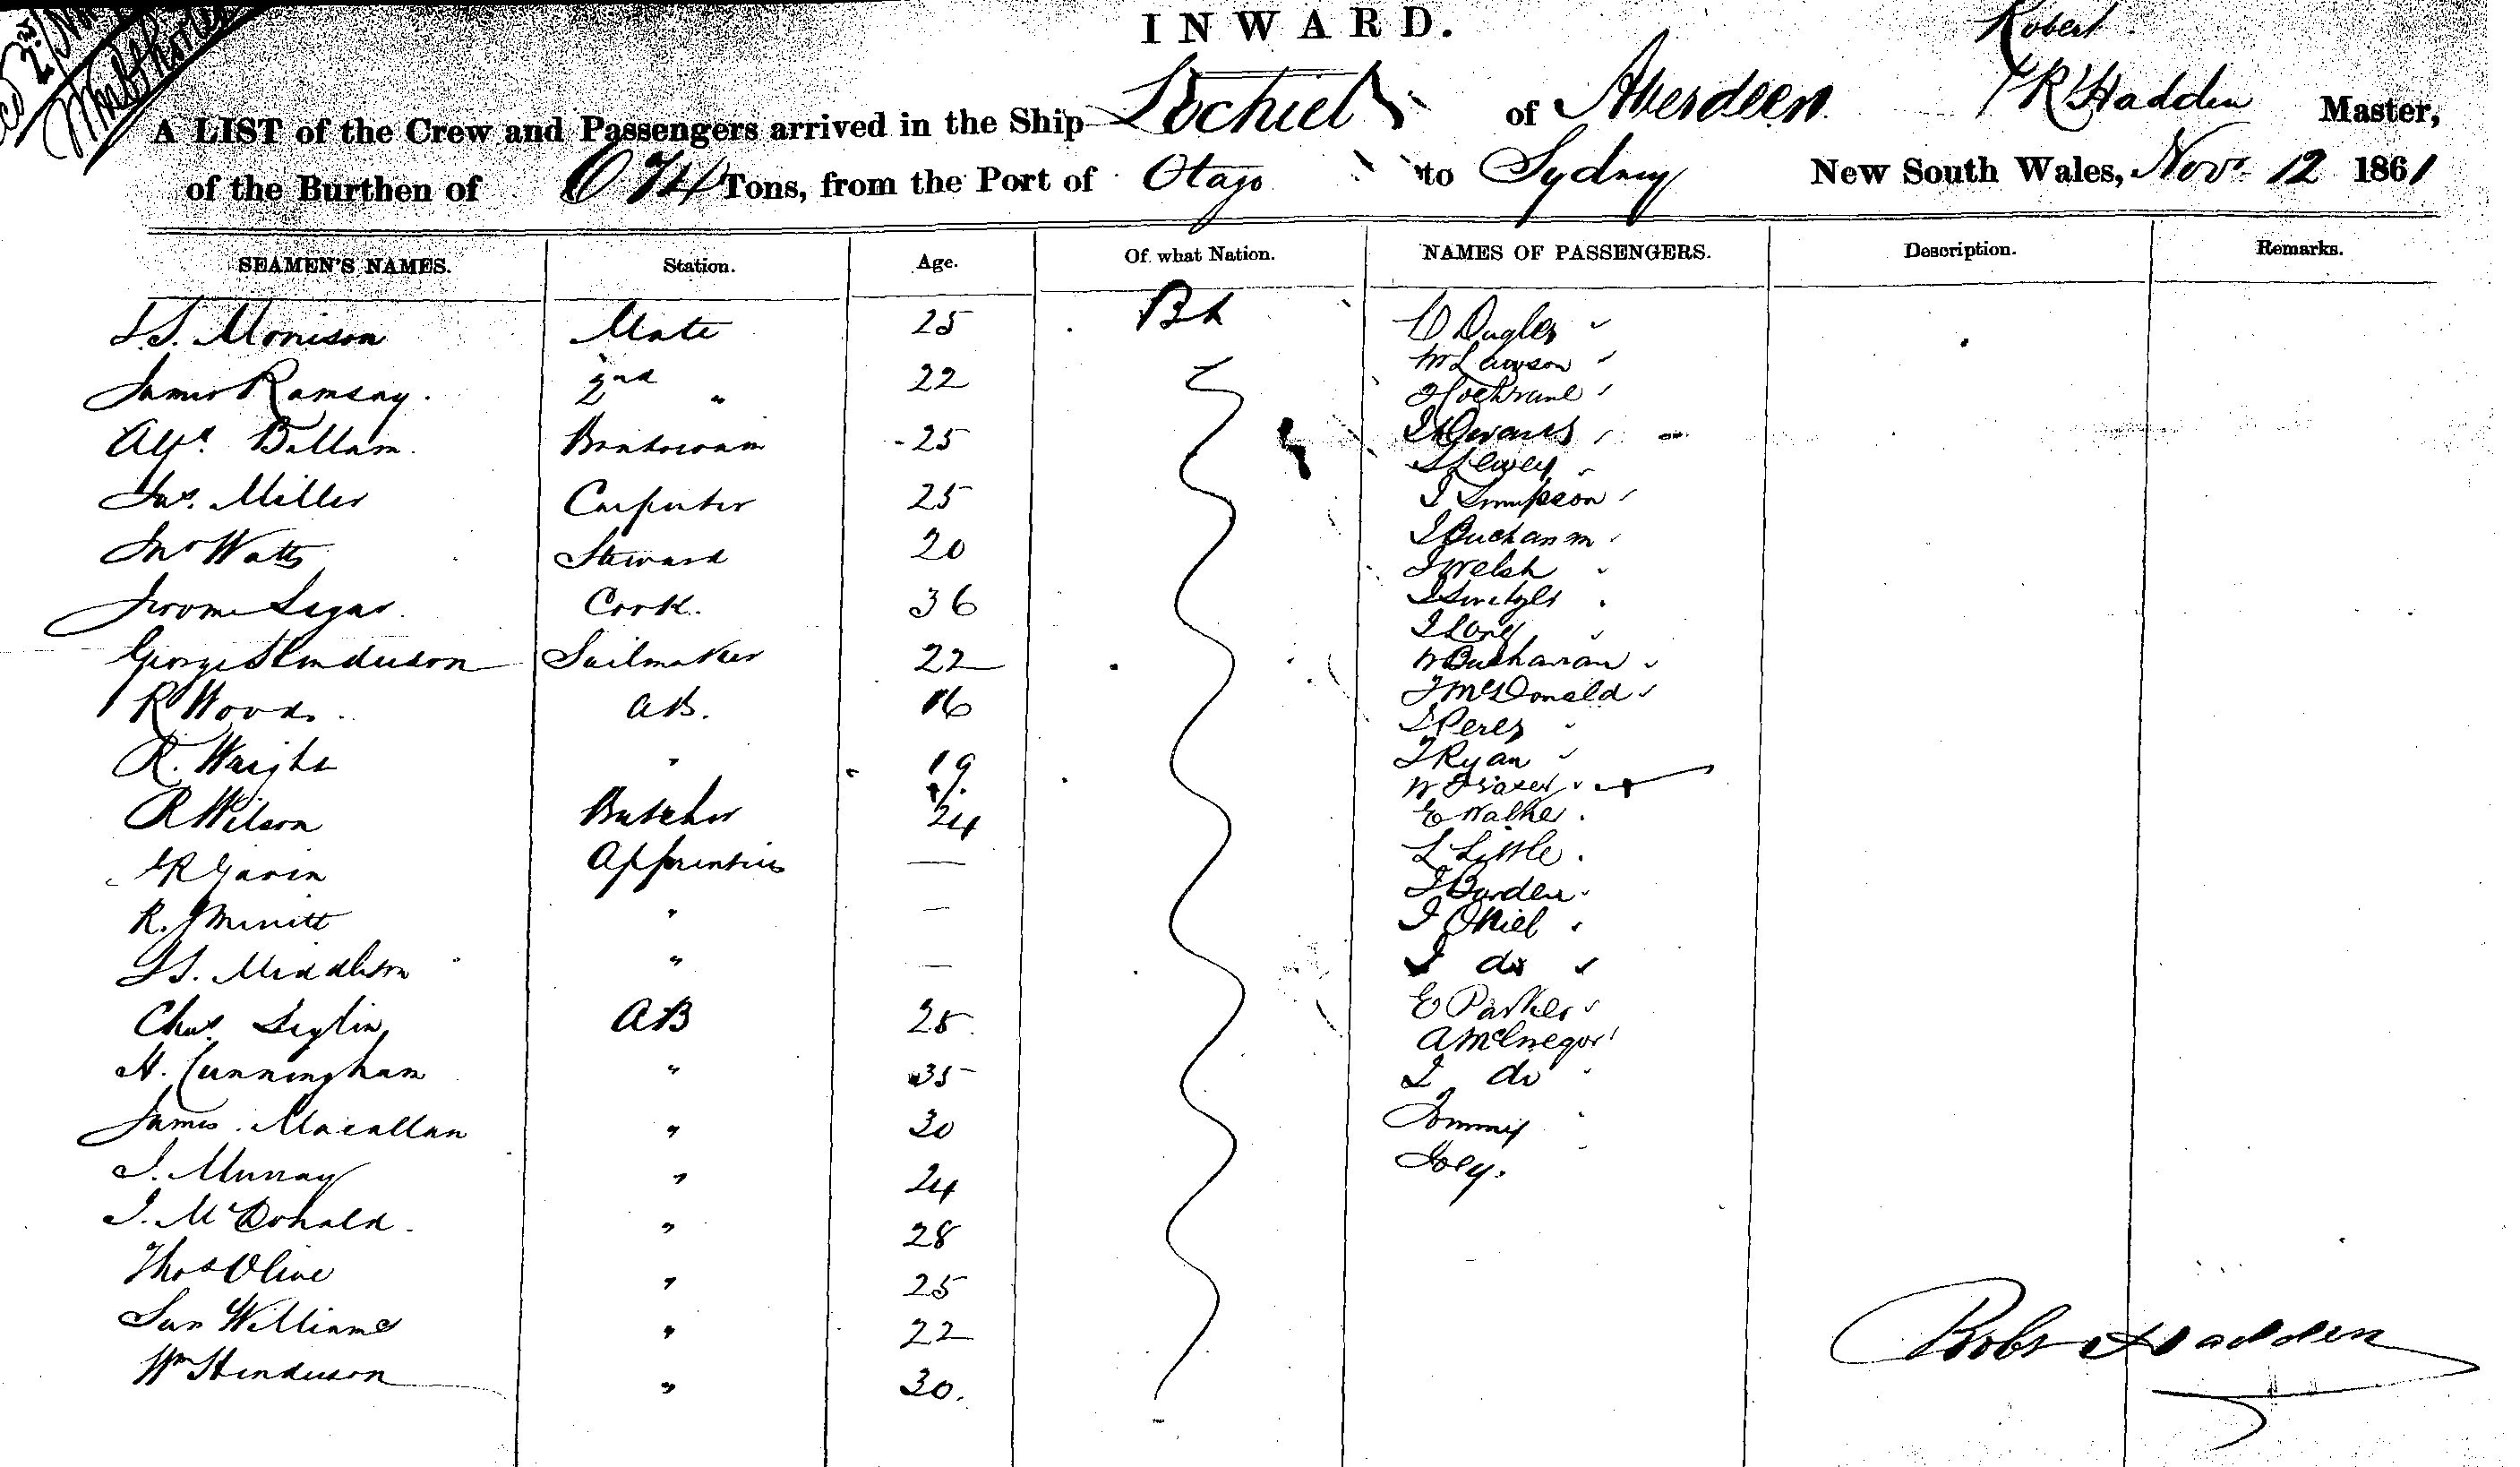 INWARD.
Robert
A LIST of the Crew and Passengers arrived in the Ship Lochiel of Aberdeen R Hadden Master,
of the Burthen of Tons, from the Port of Otago to Sydney New South Wales, Nov. 12 1861
SEAMEN'S NAMES. Station. Age. Of what Nation. NAMES OF PASSENGERS. Description. Remarks.
Morrison Mate 25
James Ramsay. 2nd " 22
25
Jas. Miller Carpenter 25
Jno Watts Steward 20
Cook. 36
George Henderson Sailmaker 22
R Woods AB. 16
R. Wright " 19
R Wilson Butcher 24
Gavin Apprentice —
R. " —
Middleton " —
Chas. AB 25
H. Cunningham " 35
James Macallan " 30
J. Murray " 24
J. McDonald. " 28
Thos Olive " 25
Williams " 22
Wm Henderson " 30.
W Lawson
Cochrane
J Simpson
J Buchanan
J Welsh
J Long
W Buchanan
J McDonald
J Perez
J Ryan
W Frazer
E Walker
L Little
J Burden
J ONiel
J do
E Parker
A McGregor
J do
Tommy
Joey.
Robt Hadden